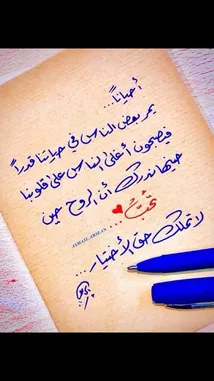 أحيانًا...
يمر بعض الناس في حياتنا قدرًا
فيصبحون أغلى الناس على قلوبنا
حينها ندرك أن الروح حين
تُحبُّ...
لا تملك حق الأختيار...